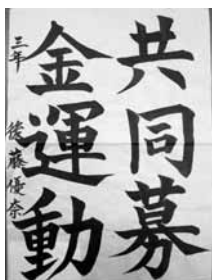 共同募
金運動
三年 後藤優奈